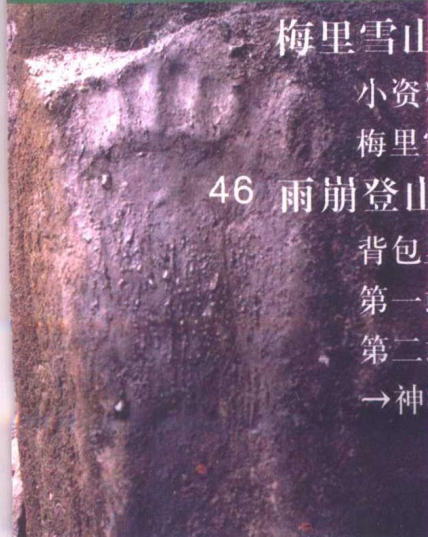 梅里雪山
小资
梅里
46 雨崩登山
背包
第一
第二
→神